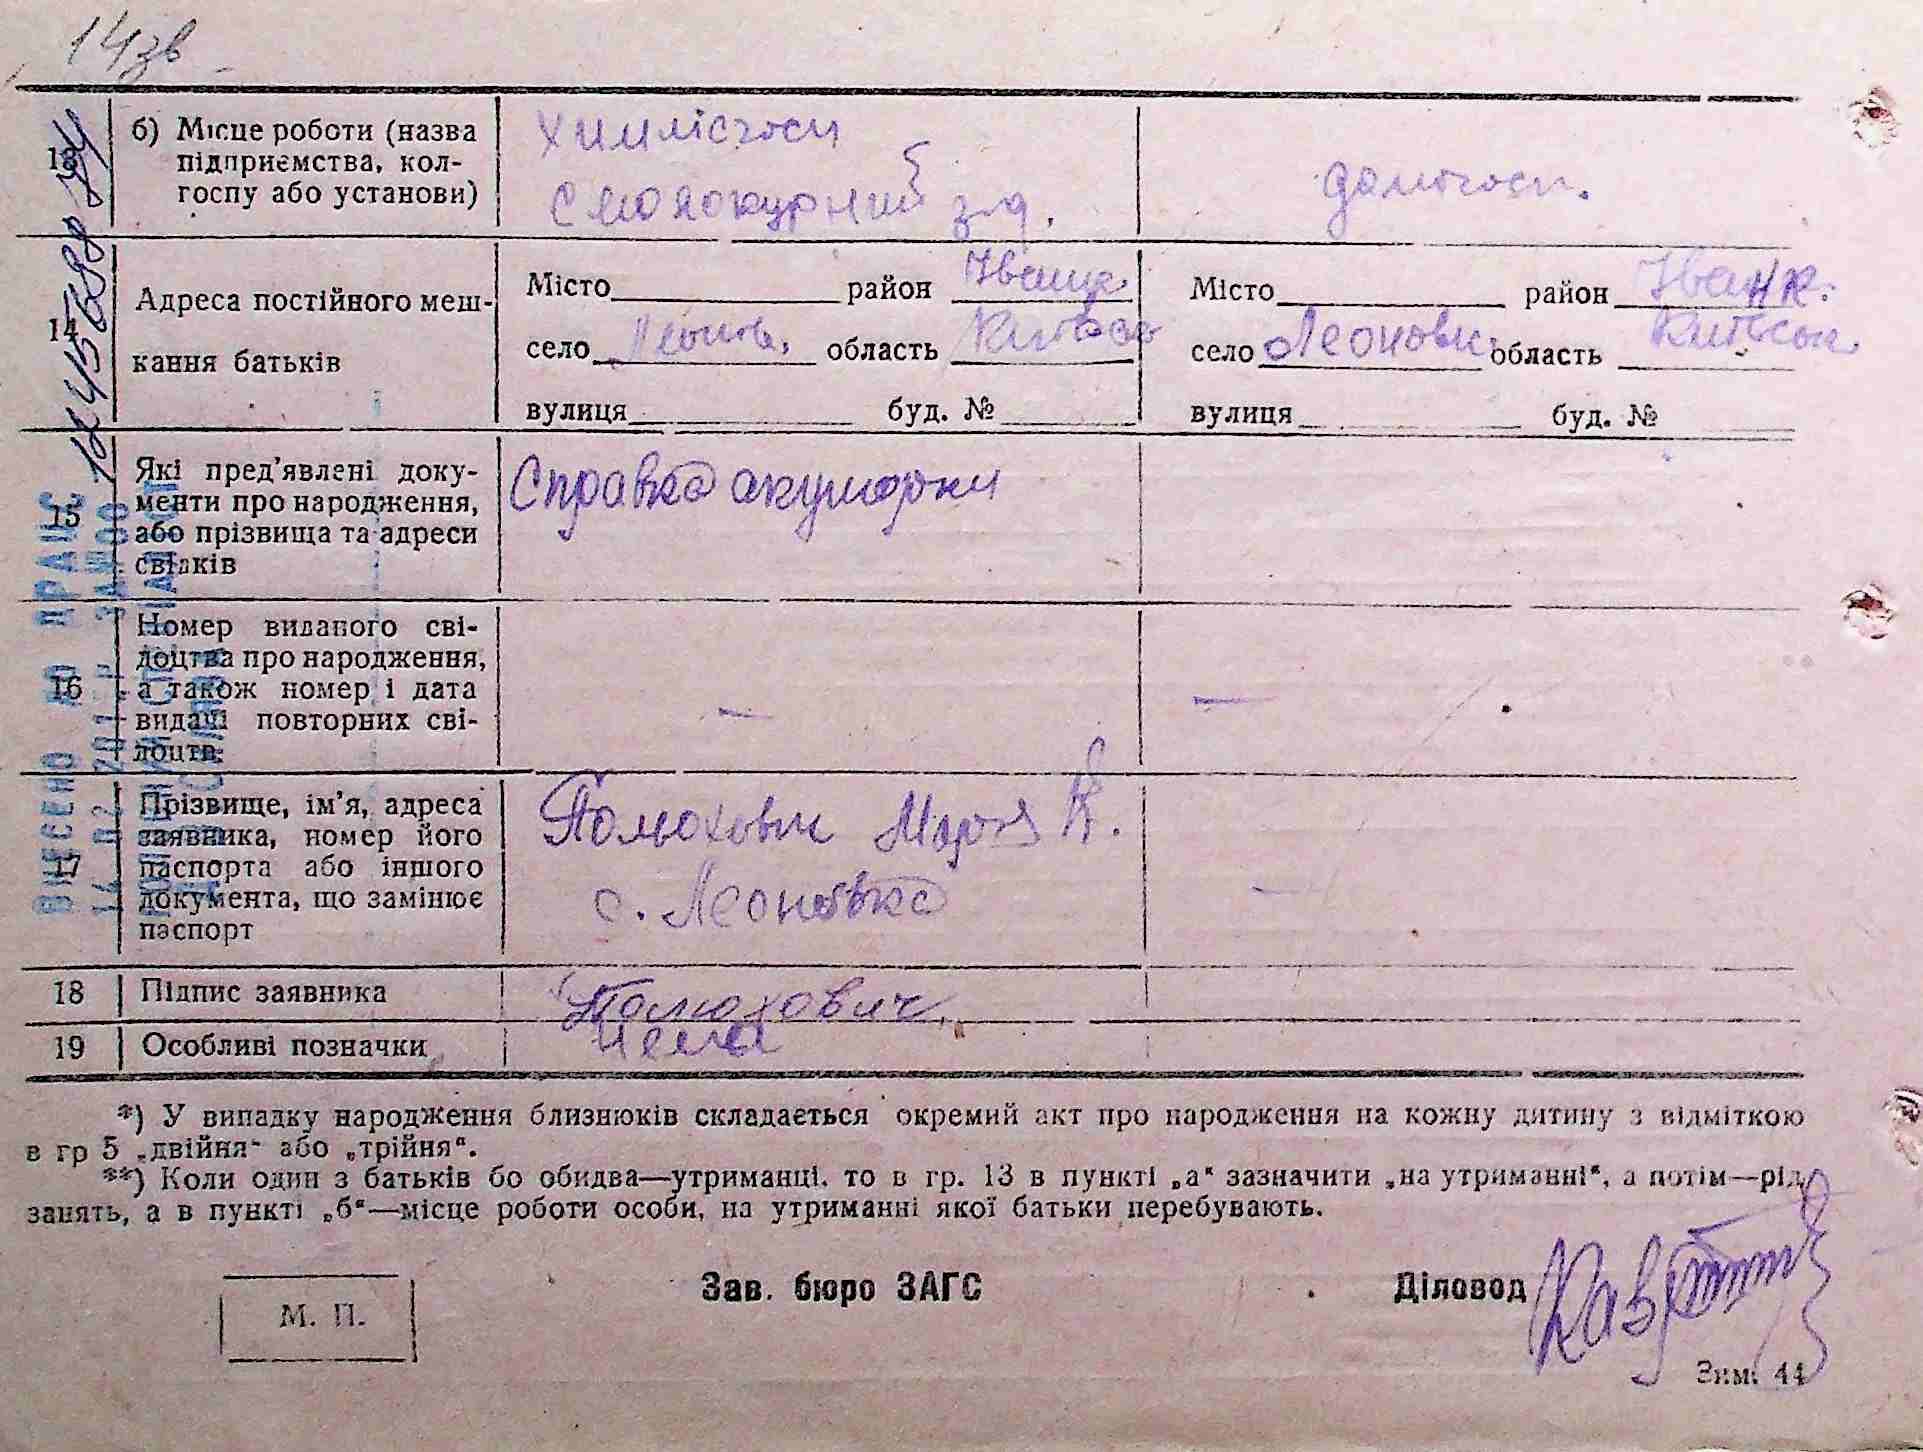 14зв
13
б) Місце роботи (назва
підприємства, кол-
госпу або установи)
Химлісгосп
Смолокурний з-д.
домогосп.
14
Адреса постійного меш-
кання батьків
Місто район Іванк.
село Леонов. область Київськ
вулиця буд. №
Місто район Іванк.
село Леоновк. область Київськ
вулиця буд. №
15
Які пред'явлені доку-
менти про народження,
або прізвища та адреси
свідків
Справка акушорки
16
Номер виданого сві-
доцтва про народження,
а також номер і дата
видачі повторних сві-
доцтв
—
—
17
Прізвище, ім'я, адреса
заявника, номер його
паспорта або іншого
документа, що замінює
паспорт
Полюхович Марія К.
с. Леоновка
—
18
Підпис заявника
Полюхович
19
Особливі позначки
Нема
*) У випадку народження близнюків складається окремий акт про народження на кожну дитину з відміткою
в гр 5 „двійня“ або „трійня“.
**) Коли один з батьків бо обидва—утриманці, то в гр. 13 в пункті „а“ зазначити „на утриманні“, а потім—рід
занять, а в пункті „б“—місце роботи особи, на утриманні якої батьки перебувають.
М. П.
Зав. бюро ЗАГС
Діловод
Зам. 44
ВНЕСЕНО ДО ДРАЦС